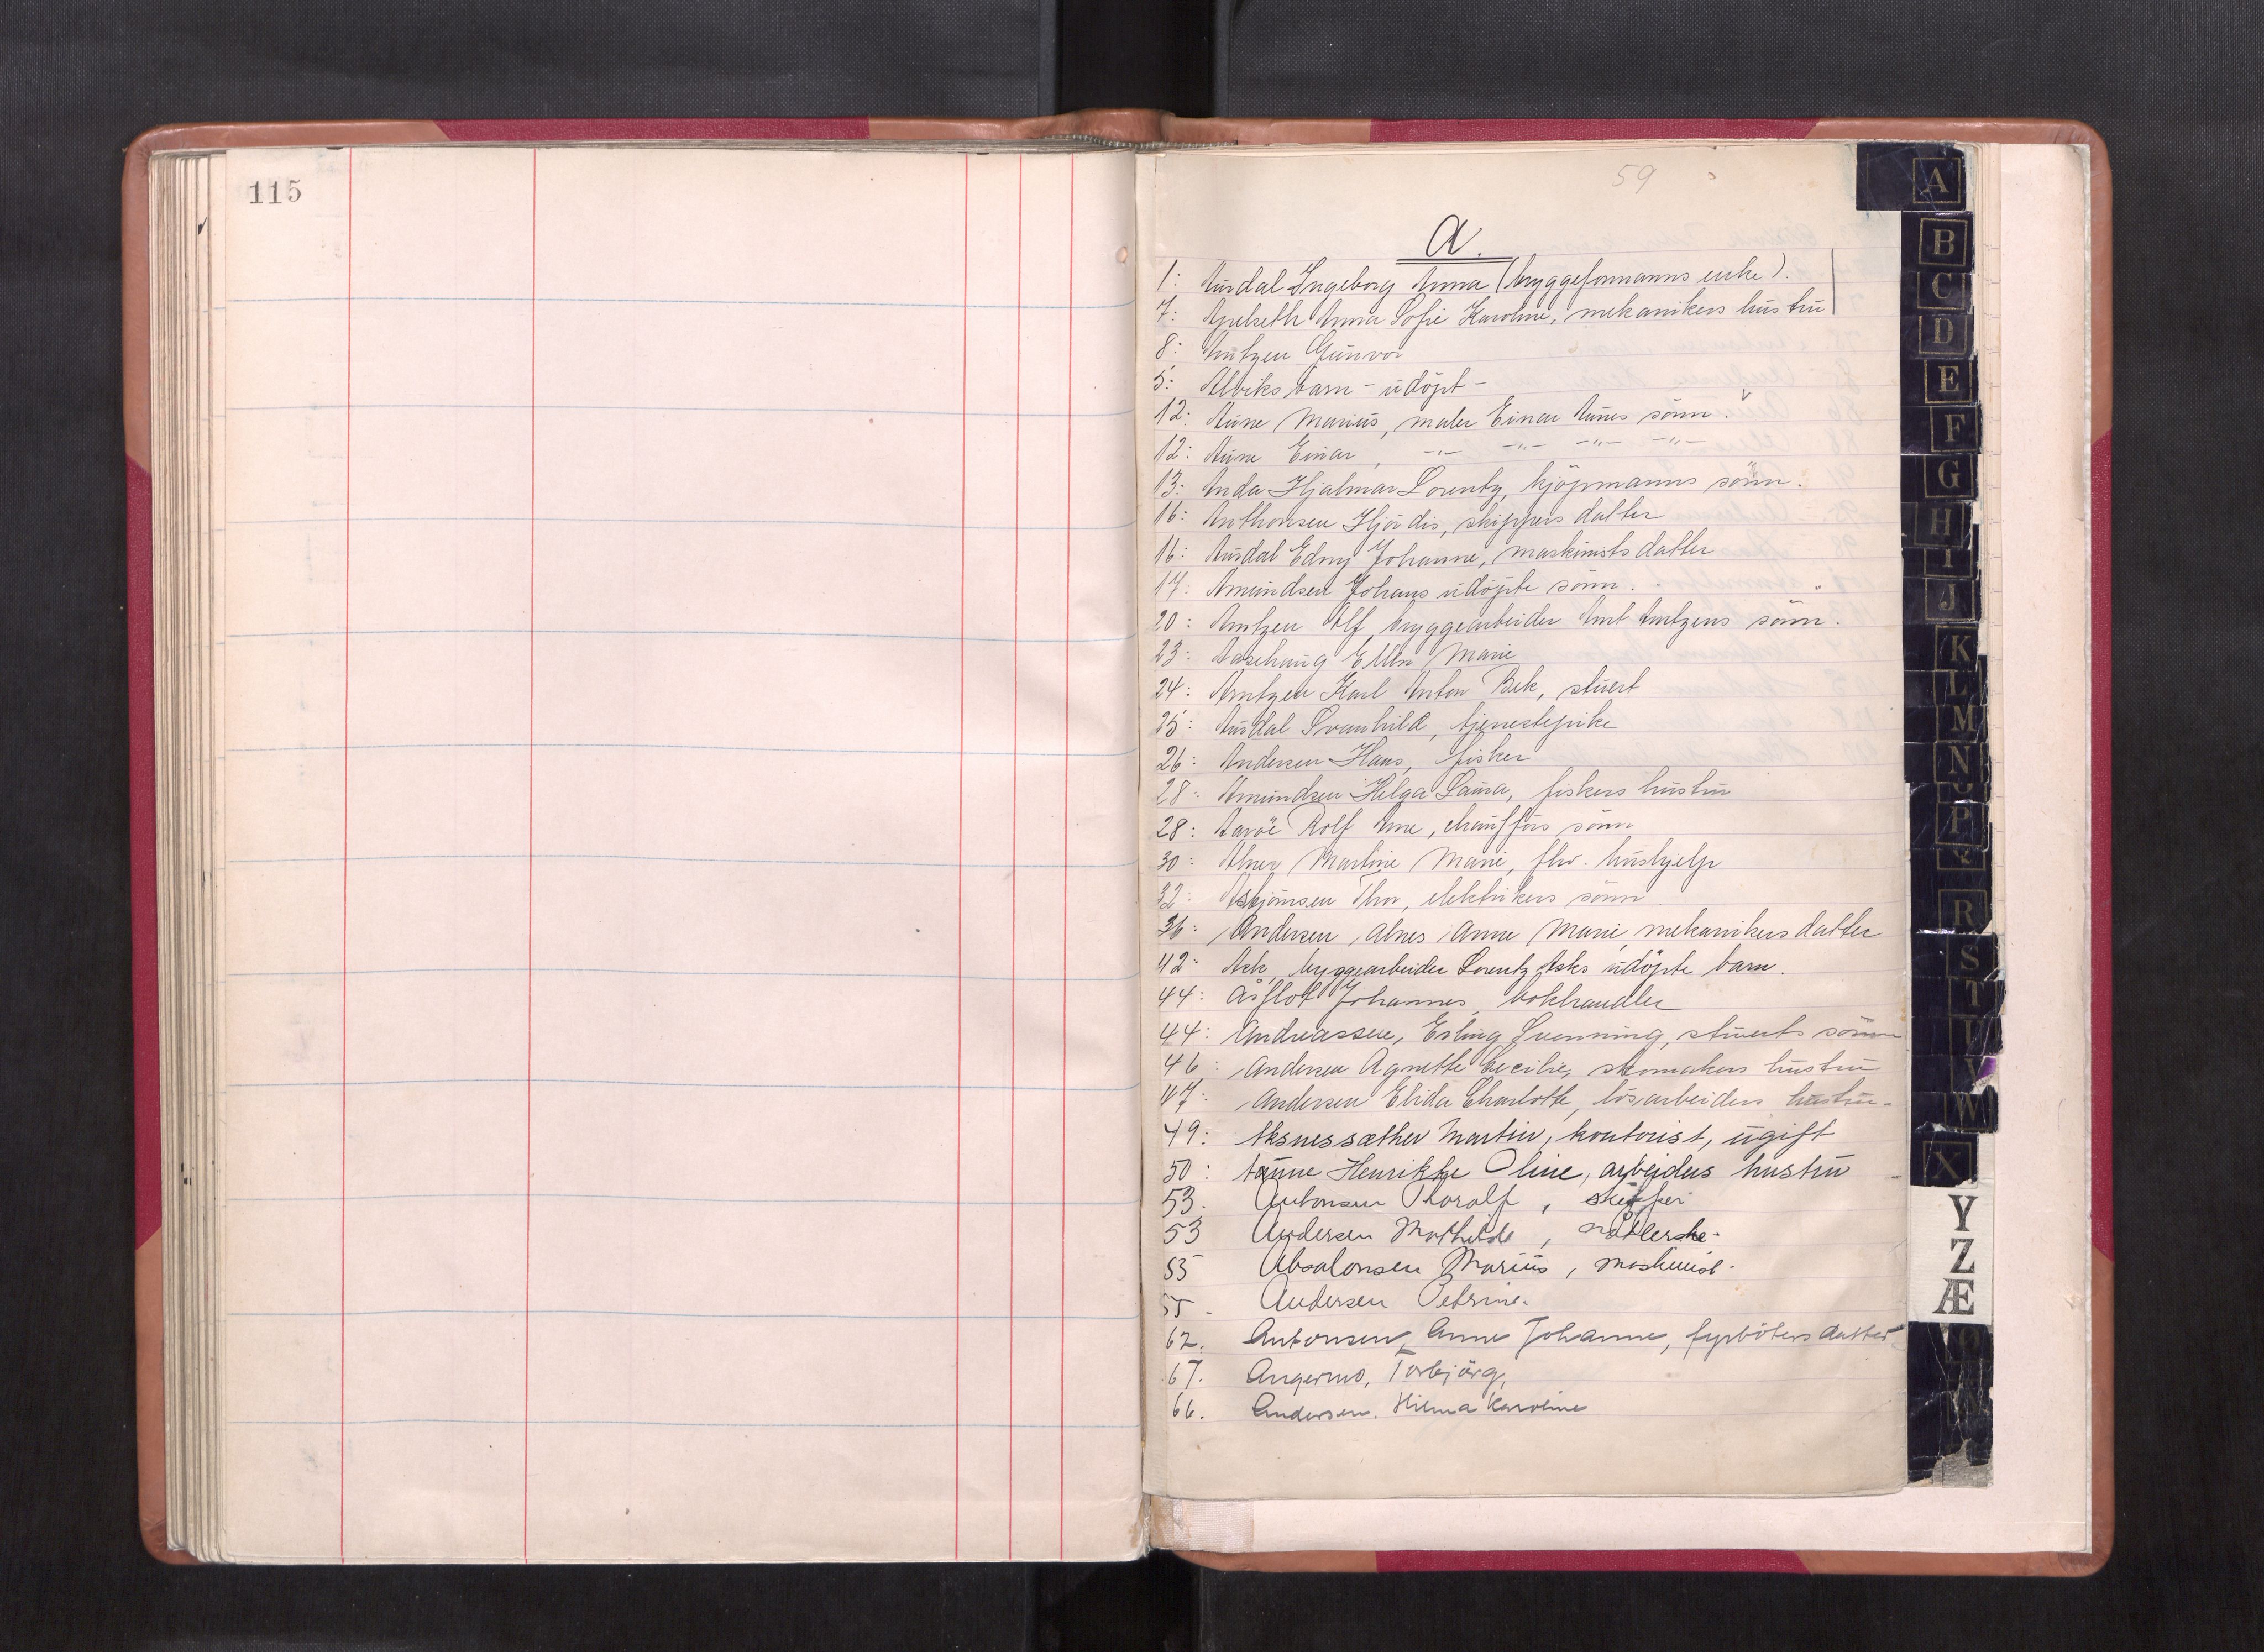 115
59
A
B
C
D
E
F
G
H
I
J
K
L
M
N
P
R
S
T
U
V
W
X
Y
Z
Æ
A.
1: Aurdal Ingeborg Anna (bryggeformanns enke).
7: Apelseth Anna Sofie Karoline, mekanikers hustru
8: Arntzen Gunvor
5: Alviks barn - udöpt -
12: Aune Marius, maler Einar Aunes sönn.
12: Aune Einar, -"- -"- -"-
13: Anda Hjalmar Lorentz, kjöpmanns sönn.
16: Anthonsen Hjördis, skippers datter
16: Aurdal Edny Johanne, maskinists datter
17: Amundsen Johans udöpte sönn.
20: Arntzen Alf bryggearbeider Arnt Arntzens sönn.
23: Aaschaug Ellen Marie
24: Arntzen Karl Anton Bek, stuert
25: Aurdal Svanhild, tjenestepike
26: Andersen Hans, fisker
28: Amundsen Helga Laura, fiskers hustru
28: Aaröe Rolf Arne, chaufförs sönn
30: Alnes Martine Marie, fhv. hushjelp
32: Asbjörnsen Thor, elektrikers sönn
36: Andersen Alnes Anne Marie mekanikers datter
42: Ask, bryggearbeider Lorentz Asks udöpte barn.
44: Åsflot Johannes bokhandler
44: Andreassen, Erling Svenning, stuerts sönn
46: Andersen Agnette Cecilie, skomakers hustru
47: Andersen Elida Charlotte, lösarbeiders hustru.
49: Aksnessæther Martin, kontorist, ugift
50: Aaune Henrikke Oline, arbeiders hustru
53. Antonsen Thoralf, skipper
53 Andersen Mathilde, nåtlerske.
55 Absalonsen Marius, maskinist.
55. Andersen Petrine.
62. Antonsen, Anne Johanne, fyrböters datter.
67. Angermo, Torbjörg,
66. Andersen. Hilma Karoline